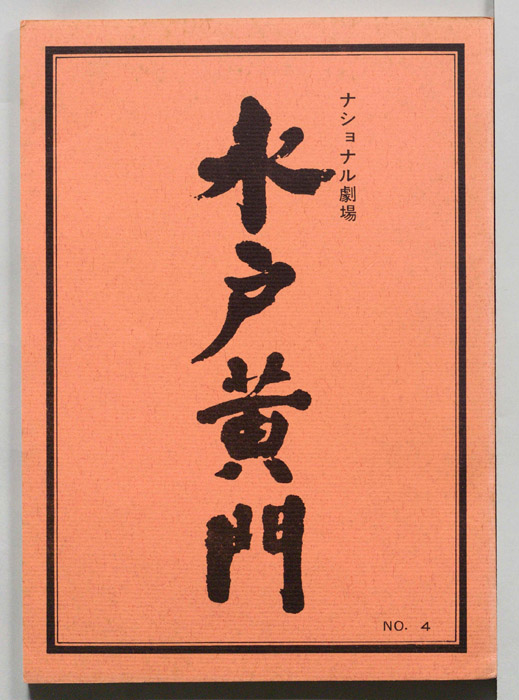 ナショナル劇場
水戸黄門
NO. 4